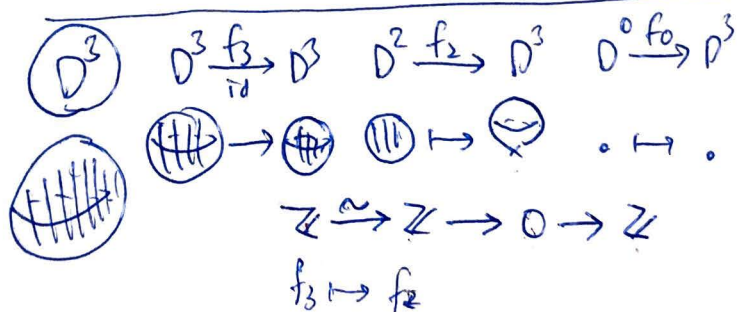 D³ D³ f₃ → id D³ D² f₂ → D³ D⁰ f₀ → D³
→ ↦ · ↦ ·
ℤ ~→ ℤ → 0 → ℤ
f₃ ↦ f₂